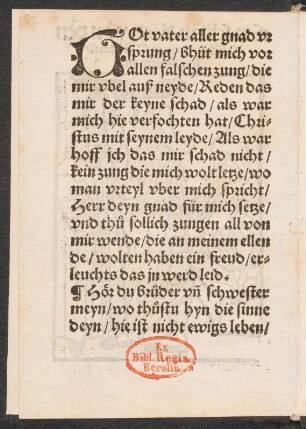 GOt vater aller gnad vr
sprung / bhüt mich vor
allen falschen zung / die
mir vbel auß neyde / Reden das
mir der keyne schad / als war
mich hie verfochten hat / Chri-
stus mit seynem leyde / Als war
hoff jch das mir schad nicht /
kein zung die mich wolt letze / wo
man vrteyl vber mich spricht /
Herr deyn gnad für mich setze /
vnd thů sollich zungen all von
mir wende / die an meinem ellen
de / wolten haben ein freud / er-
leuchts das jn werd leid.
¶ Hör du brůder vñ schwester
meyn / wo thůstu hyn die sinne
deyn / hie ist nicht ewigs leben /
Ex
Bibl. Regia
Berolin.